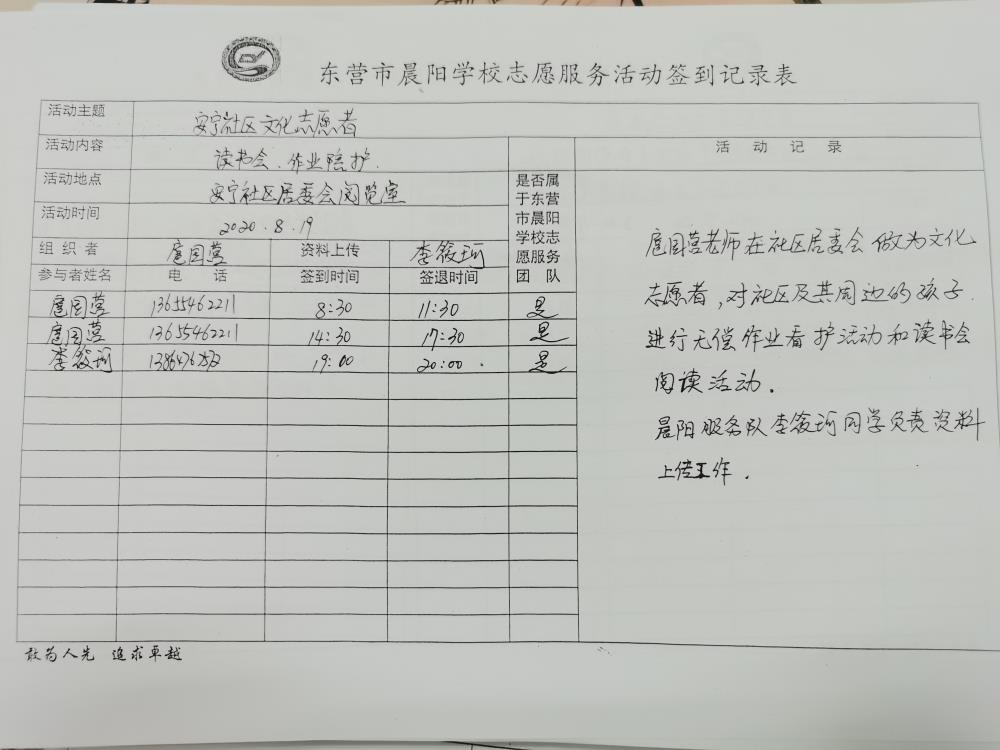 东营市晨阳学校志愿服务活动签到记录表
活动主题 安宁社区文化志愿者
活动内容 读书会、作业陪护.
活动地点 安宁社区居委会阅览室
活动时间 2020.8.19
组织者 扈国营 资料上传 李筱珂
参与者姓名 电话 签到时间 签退时间
是否属
于东营
市晨阳
学校志
愿服务
团队
扈国营 13655462211 8:30 11:30 是
扈国营 13655462211 14:30 17:30 是
李筱珂 19:00 20:00. 是
活动记录
扈国营老师在社区居委会做为文化
志愿者,对社区及其周边的孩子
进行无偿作业看护活动和读书会
阅读活动.
晨阳服务队李筱珂同学负责资料
上传工作.
敢为人先 追求卓越